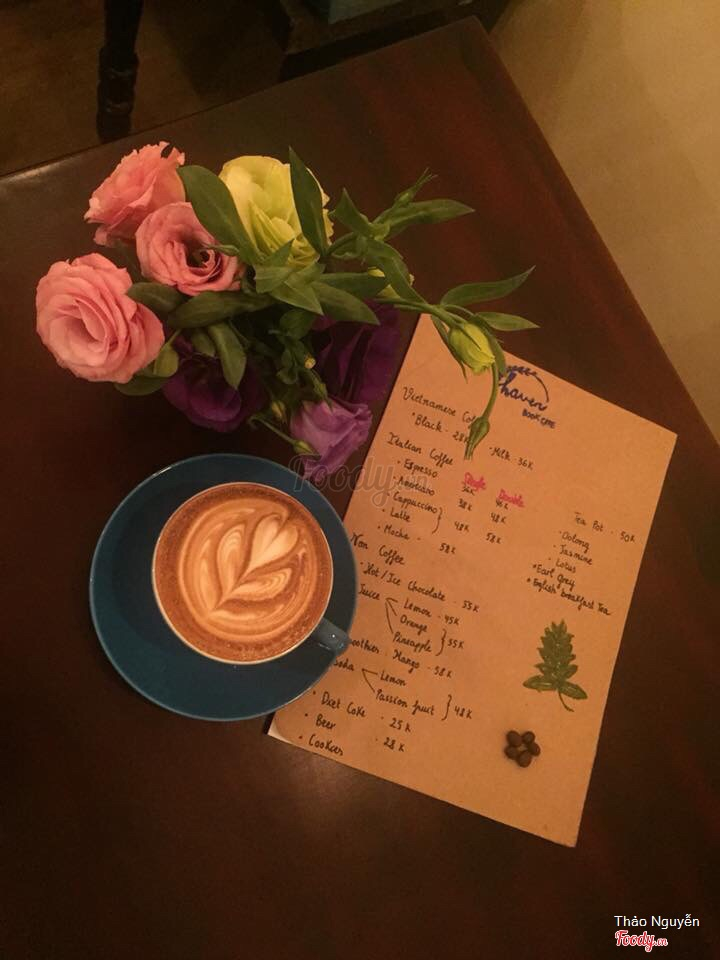 haven
BOOK CAFE
Vietnamese
• Black - 28K
• Milk - 36K
Italian Coffee
Single Double
• Espresso 36K 46K
• Americano 38K 48K
• Cappuccino }
• Latte 48K 58K
• Mocha - 58K
Non Coffee
• Hot/Ice Chocolate - 55K
Juice Lemon - 45K
Orange
Pineapple } 55K
Mango - 58K
Lemon
Passion fruit } 48K
• Diet Coke - 25K
• Beer - 28K
• Cookies
Tea Pot - 50K
• Oolong
• Jasmine
• Lotus
• Earl Grey
• English breakfast Tea
Foody.vn
Thảo Nguyễn
Foody.vn